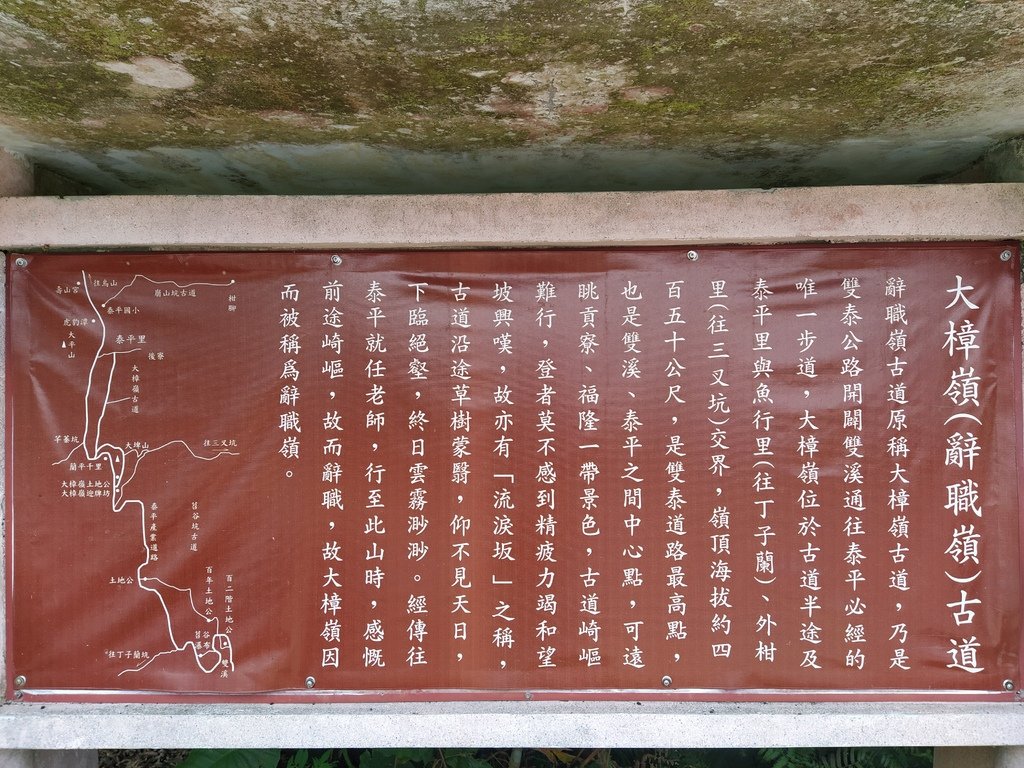 大樟嶺(辭職嶺)古道
辭職嶺古道原稱大樟嶺古道，乃是
雙泰公路開闢雙溪通往泰平必經的
唯一步道，大樟嶺位於古道半途及
泰平里與魚行里(往丁子蘭)、外柑
里(往三叉坑)交界，嶺頂海拔約四
百五十公尺，是雙泰道路最高點，
也是雙溪、泰平之間中心點，可遠
眺貢寮、福隆一帶景色，古道崎嶇
難行，登者莫不感到精疲力竭和望
坡興嘆，故亦有「流淚坂」之稱，
古道沿途草樹蒙翳，仰不見天日，
下臨絕壑，終日雲霧渺渺。經傳往
泰平就任老師，行至此山時，感慨
前途崎嶇，故而辭職，故大樟嶺因
而被稱爲辭職嶺。
往烏山
壽山宮
崩山坑古道
柑腳
泰平國小
虎豹潭
太平山
泰平里
後寮
大樟嶺古道
芊蓁坑
大埤山
往三叉坑
蘭平千里
大樟嶺土地公
大樟嶺迎牌坊
泰平產業道路
舊谷坑古道
土地公
百年土地公
百二階土地公
舊谷瀑布
雙溪
往丁子蘭坑